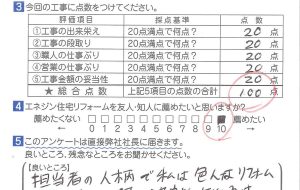 3 今回の工事に点数をつけてください。
評価項目 採点基準 点数
①工事の出来栄え 20点満点で何点? 20 点
②工事の段取り 20点満点で何点? 20 点
③職人の仕事ぶり 20点満点で何点? 20 点
④営業の仕事ぶり 20点満点で何点? 20 点
⑤工事金額の妥当性 20点満点で何点? 20 点
★ 総合点数 上記5項目の点数の合計 100 点
4 エネジン住宅リフォームを友人・知人に薦めたいと思いますか?
薦めたくない □ □ □ □ □ □ □ □ □ □ ■ 薦めたい
0 1 2 3 4 5 6 7 8 9 10
5 このアンケートは直接弊社社長に届きます。
良いところ、残念なところをお聞かせください。
【良いところ】
担当者の人柄で私は色んなリフォム